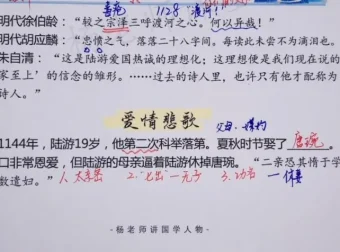 壹宛 1128 "渡河!"
明代徐伯龄:"较之宗泽三呼渡河之心,何以异哉!"
明代胡应麟:"忠愤之气,落落二十八字间,每读此未尝不为滴泪也。
朱自清:"这是陆游爱国热诚的理想化;这理想便是我们现在说的
家至上'的信念的雏形。……过去的诗人里,也许只有他才配称为
诗人。"
爱情悲歌
父母、媒妁
1144年,陆游19岁,他第二次科举落第。夏秋时节娶了唐琬。
口非常恩爱,但陆游的母亲逼着陆游休掉唐琬。"二亲恐其惰于学
数遣妇。"
1. 太亲密 2. "七出"一无子 3. 功名
-杨老师讲国学人物-